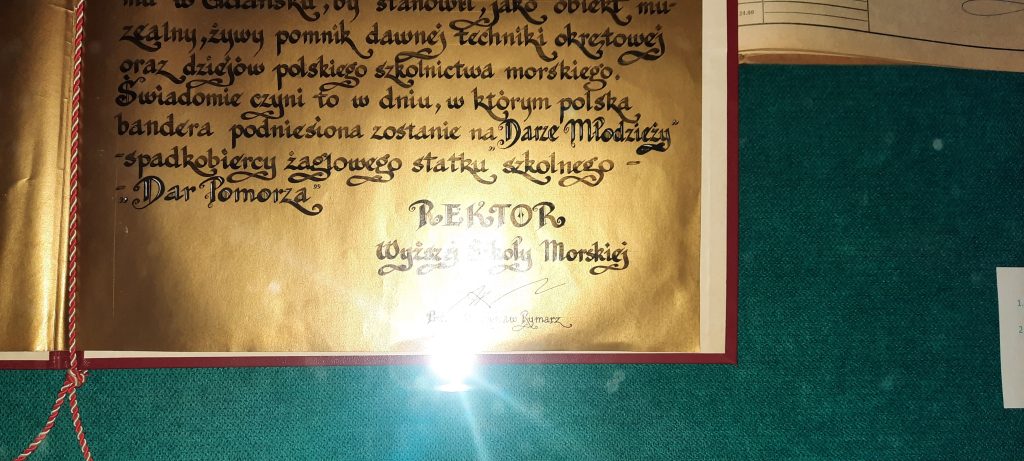 w Gdańsku, by stanowił, jako obiekt mu-
zealny, żywy pomnik dawnej techniki okrętowej
oraz dziejów polskiego szkolnictwa morskiego.
Świadomie czyni to w dniu, w którym polska
bandera podniesiona zostanie na "Darze Młodzieży"
-spadkobiercy żaglowego statku szkolnego -
- "Dar Pomorza"
REKTOR
Wyższej Szkoły Morskiej
Rymarz
24.00
1.
2